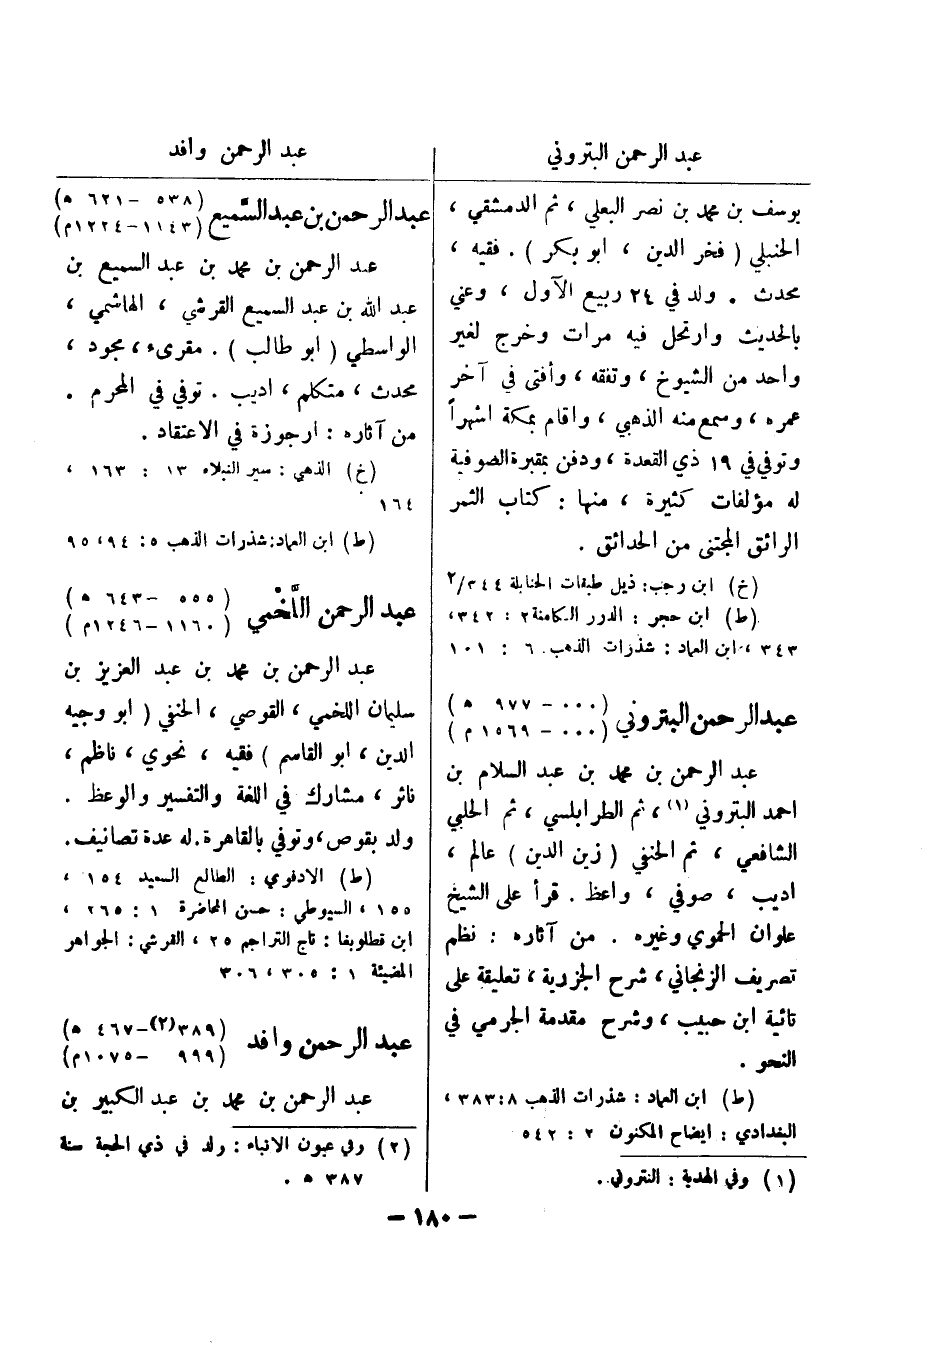 عبد الرحمن البتروني
يوسف بن محمد بن نصر البعلي ، ثم الدمشقي ،
الحنبلي ( فخر الدين ، ابو بكر ) . فقيه ،
محدث . ولد في ٢٤ ربيع الآول ، وعني
بالحديث وارتحل فيه مرات وخرج لغير
واحد من الشيوخ ، وتفقه ، وأفتى في آخر
عمره ، وسمع منه الذهبي ، واقام بمكة اشهراً
وتوفي في ١٩ ذي القعدة ، ودفن بمقبرة الصوفية
له مؤلفات كثيرة ، منها : كتاب الثمر
الرائق المجتنى من الحدائق .
(خ) ابن رجب : ذيل طبقات الحنابلة ٢/٣٤٤
(ط) ابن حجر : الدرر الكامنة ٢ : ٣٤٢ ،
٣٤٣ ، ابن العماد : شذرات الذهب ٦ : ١٠١
عبد الرحمن البتروني (٠٠٠ - ٩٧٧ ه)
(٠٠٠ - ١٥٦٩ م)
عبد الرحمن بن محمد بن عبد السلام بن
احمد البتروني (١) ، ثم الطرابلسي ، ثم الحلبي
الشافعي ، ثم الحنفي ( زين الدين ) عالم ،
اديب ، صوفي ، واعظ . قرأ على الشيخ
علوان الحموي وغيره . من آثاره : نظم
تصريف الزنجاني ، شرح الجزرية ، تعليقة على
تائية ابن حبيب ، وشرح مقدمة الجرمي في
النحو .
(ط) ابن العماد : شذرات الذهب ٨ : ٣٨٣ ،
البغدادي : ايضاح المكنون ٢ : ٥٤٢
(١) وفي الهدية : النتروني .
عبد الرحمن وافد
عبد الرحمن بن عبد السَّميع (٥٣٨ - ٦٢١ ه)
(١١٤٣ - ١٢٢٤م)
عبد الرحمن بن محمد بن عبد السميع بن
عبد الله بن عبد السميع القرشي ، الهاشمي ،
الواسطي ( ابو طالب ) . مقرىء ، مجود ،
محدث ، متكلم ، اديب . توفي في المحرم .
من آثاره : ارجوزة في الاعتقاد .
(خ) الذهبي : سير النبلاء ١٣ : ١٦٣ ،
١٦٤
(ط) ابن العماد : شذرات الذهب ٥ : ٩٤ ، ٩٥
عبد الرحمن اللَّخْمي (٥٥٥ - ٦٤٣ ه)
(١١٦٠ - ١٢٤٦م)
عبد الرحمن بن محمد بن عبد العزيز بن
سليمان اللخمي ، القوصي ، الحنفي ( ابو وجيه
الدين ، ابو القاسم ) فقيه ، نحوي ، ناظم ،
ناثر ، مشارك في اللغة والتفسير والوعظ .
ولد بقوص ، وتوفي بالقاهرة . له عدة تصانيف .
(ط) الادفوي : الطالع السعيد ١٥٤ ،
١٥٥ ، السيوطي : حسن المحاضرة ١ : ٢٦٥ ،
ابن قطلوبغا : تاج التراجم ٢٥ ، القرشي : الجواهر
المضيئة ١ : ٣٠٥ ، ٣٠٦
عبد الرحمن وافد (٣٨٩(٢) - ٤٦٧ ه)
(٩٩٩ - ١٠٧٥م)
عبد الرحمن بن محمد بن عبد الكبير بن
(٢) وفي عيون الانباء : ولد في ذي الحجة سنة
٣٨٧ ه .
- ١٨٠ -